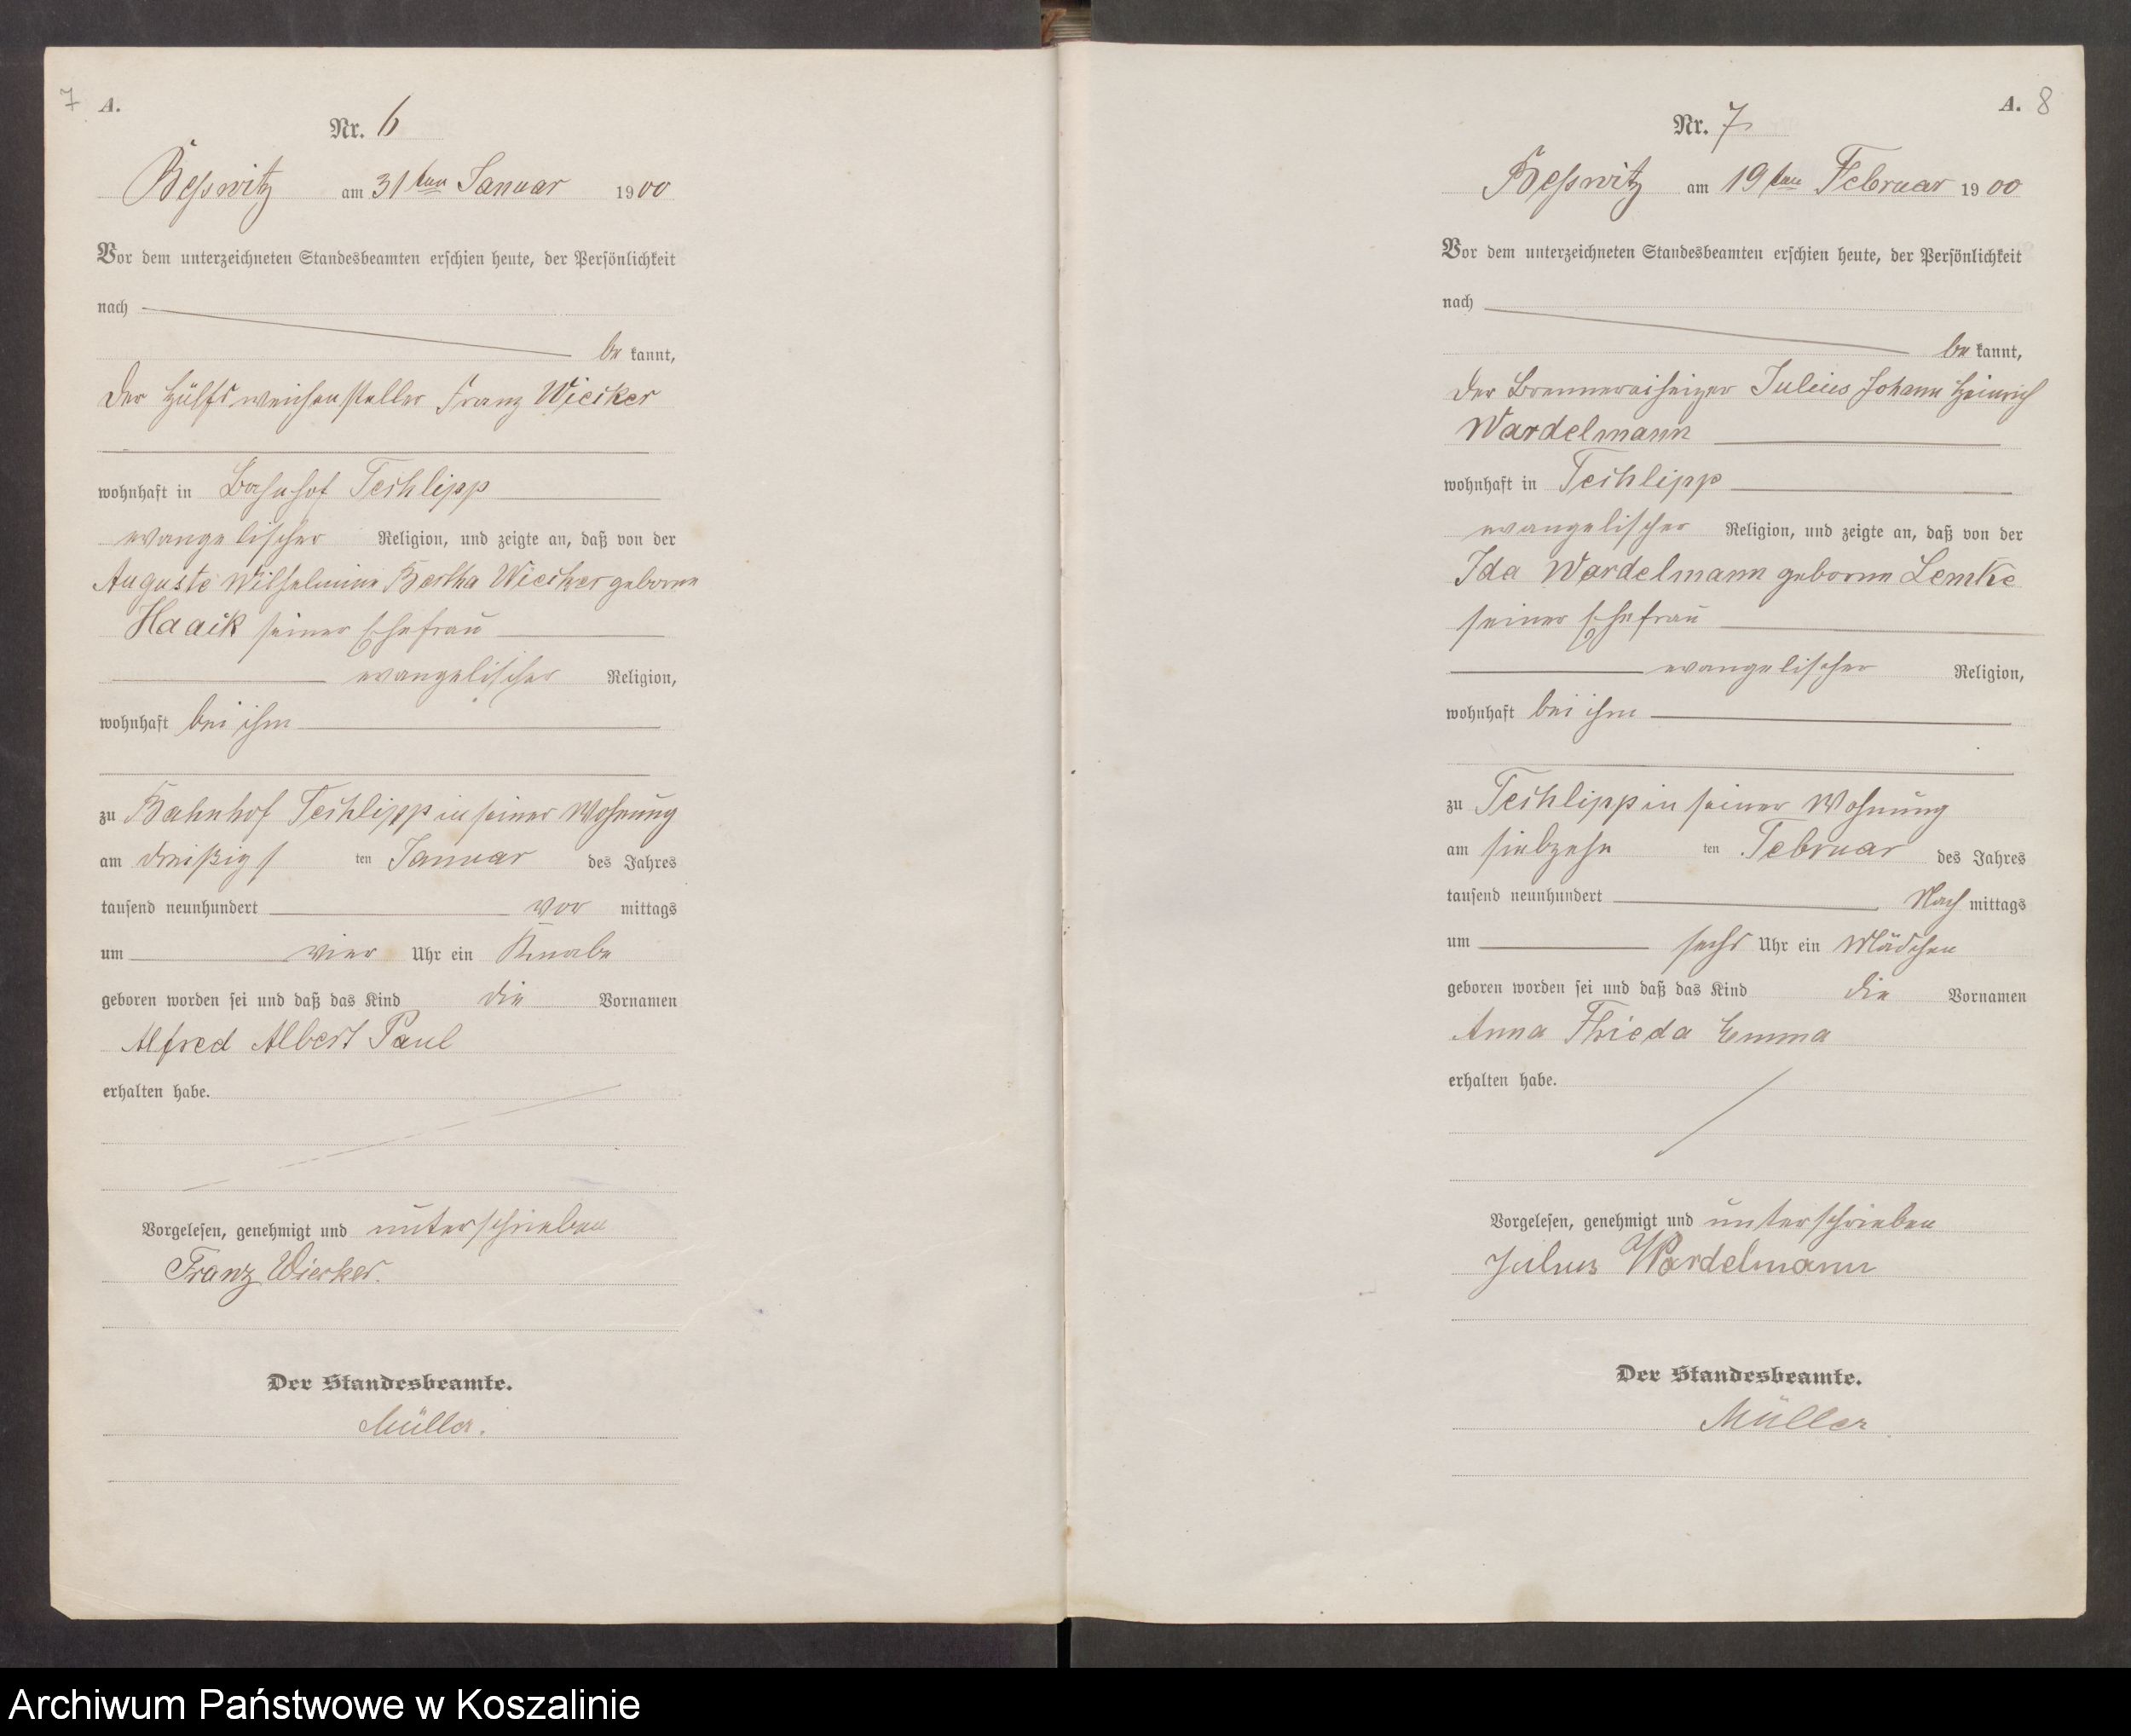 7 A.
Nr. 6
Beßwitz am 31ten Januar 1900
Vor dem unterzeichneten Standesbeamten erschien heute, der Persönlichkeit
nach
be kannt,
der Hülfsweichensteller Franz Wiesker
wohnhaft in Bahnhof Techlipp
evangelischer Religion, und zeigte an, daß von der
Auguste Wilhelmine Bertha Wiesker geborne
Haack seiner Ehefrau
evangelischer Religion,
wohnhaft bei ihm
zu Bahnhof Techlipp in seiner Wohnung
am dreißigs ten Januar des Jahres
tausend neunhundert vor mittags
um vier Uhr ein Knabe
geboren worden sei und daß das Kind die Vornamen
Alfred Albert Paul
erhalten habe.
Vorgelesen, genehmigt und unterschrieben
Franz Wiesker.
Der Standesbeamte.
Müller.
A. 8
Nr. 7
Beßwitz am 19ten Februar 1900
Vor dem unterzeichneten Standesbeamten erschien heute, der Persönlichkeit
nach
be kannt,
der Brennereiheizer Julius Johann Heinrich
Wardelmann
wohnhaft in Techlipp
evangelischer Religion, und zeigte an, daß von der
Ida Wardelmann geborne Lemke
seiner Ehefrau
evangelischer Religion,
wohnhaft bei ihm
zu Techlipp in seiner Wohnung
am siebzehn ten Februar des Jahres
tausend neunhundert Nach mittags
um sechs Uhr ein Mädchen
geboren worden sei und daß das Kind die Vornamen
Anna Frieda Emma
erhalten habe.
Vorgelesen, genehmigt und unterschrieben
Julius Wardelmann
Der Standesbeamte.
Müller
Archiwum Państwowe w Koszalinie